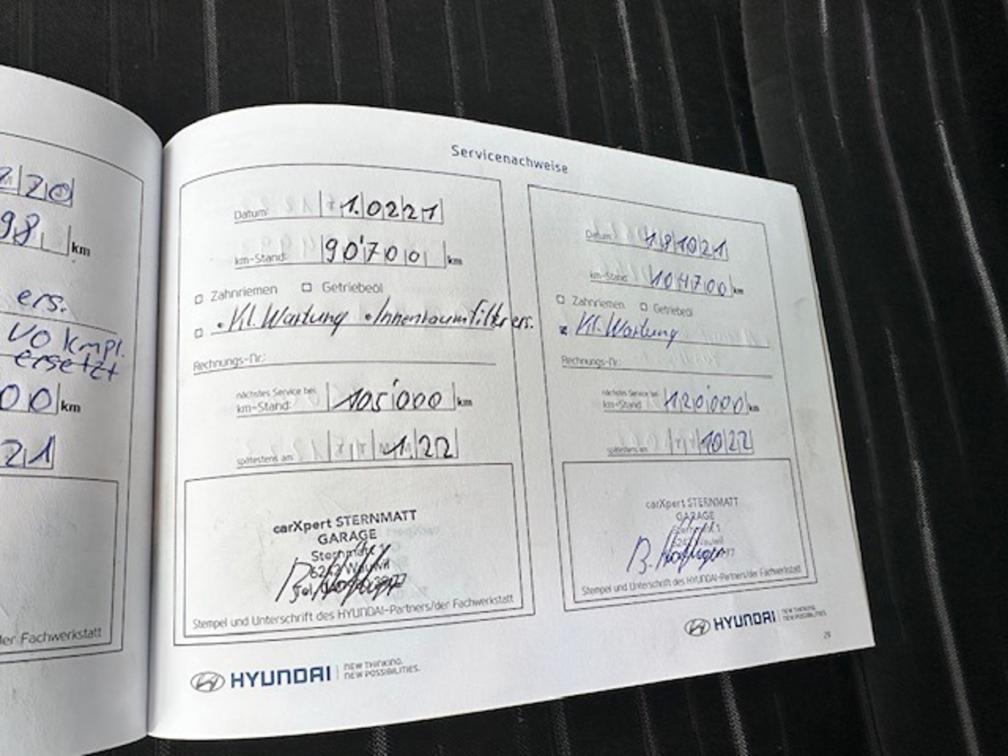 Servicenachweise
20
98 km
ers.
vo kmpl.
ersetzt
00 km
21
der Fachwerkstatt
Datum: 1.0221
km-Stand: 90'700 km
Zahnriemen Getriebeöl
• Kl. Wartung • Innenraumfilter ers.
Rechnungs-Nr.:
nächstes Service bei
km-Stand: 105'000 km
spätestens am 1 22
carXpert STERNMATT
GARAGE
6242 Wauwil
Stempel und Unterschrift des HYUNDAI-Partners/der Fachwerkstatt
HYUNDAI NEW THINKING.
NEW POSSIBILITIES.
Datum: 181021
km-Stand: 104700 km
Zahnriemen Getriebeöl
x Kl. Wartung
Rechnungs-Nr.:
nächstes Service bei
km-Stand: 120'000 km
spätestens am 1022
carXpert STERNMATT
GARAGE
6242 Wauwil
Stempel und Unterschrift des HYUNDAI-Partners/der Fachwerkstatt
HYUNDAI NEW THINKING.
NEW POSSIBILITIES.
29